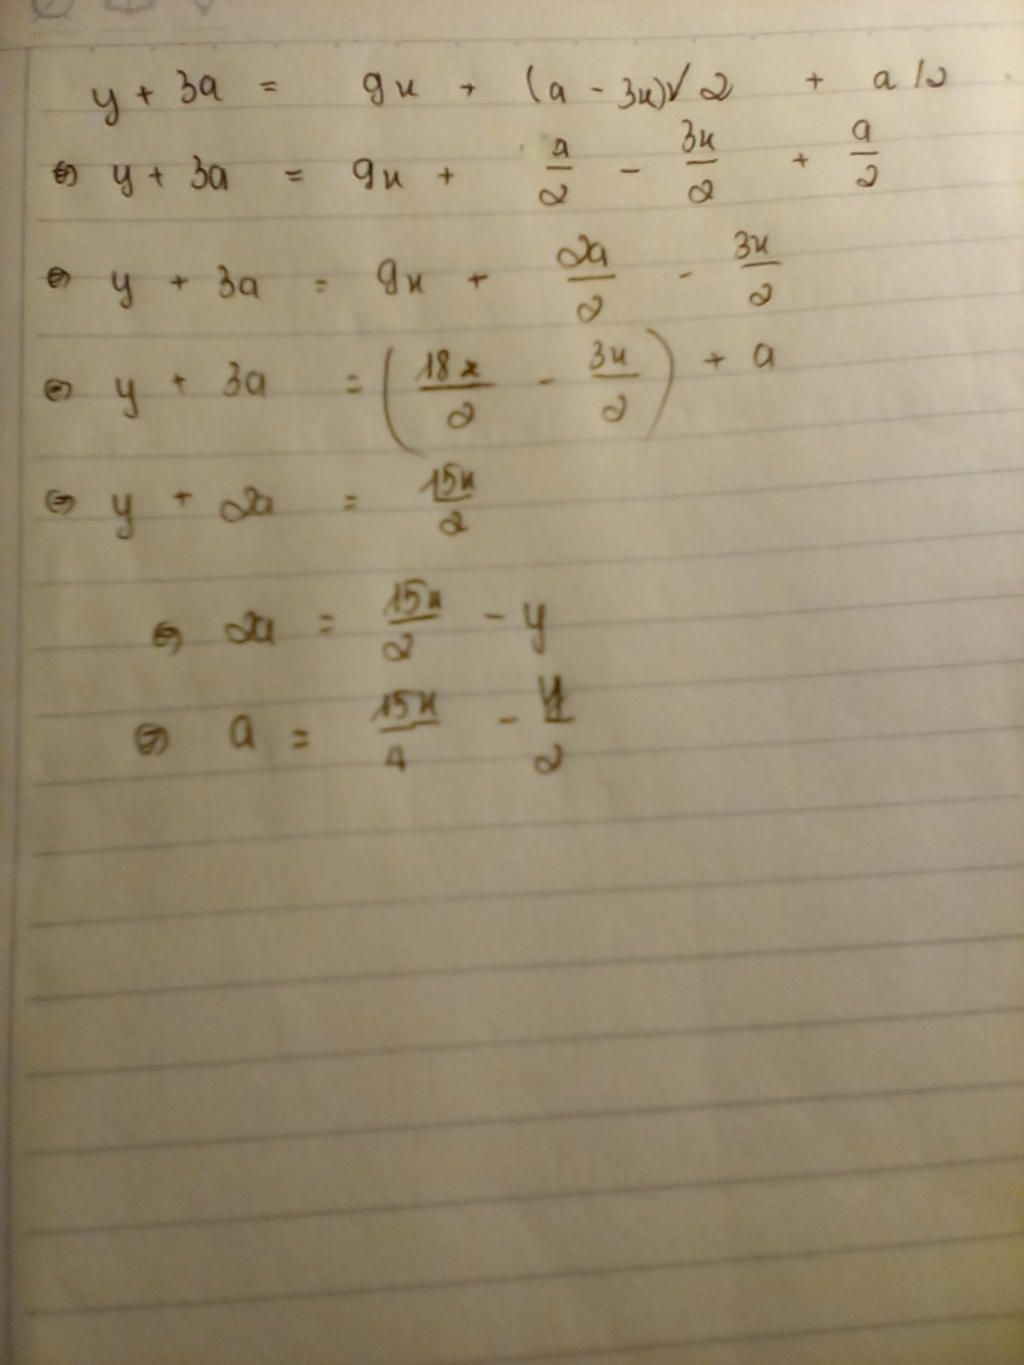 y + 3a = 9x + (a - 3x)√2 + a/2
⇔ y + 3a = 9x + a/2 - 3x/2 + a/2
⇔ y + 3a = 9x + 2a/2 - 3x/2
⇔ y + 3a = (18x/2 - 3x/2) + a
⇔ y + 2a = 15x/2
⇔ 2a = 15x/2 - y
⇔ a = 15x/4 - y/2